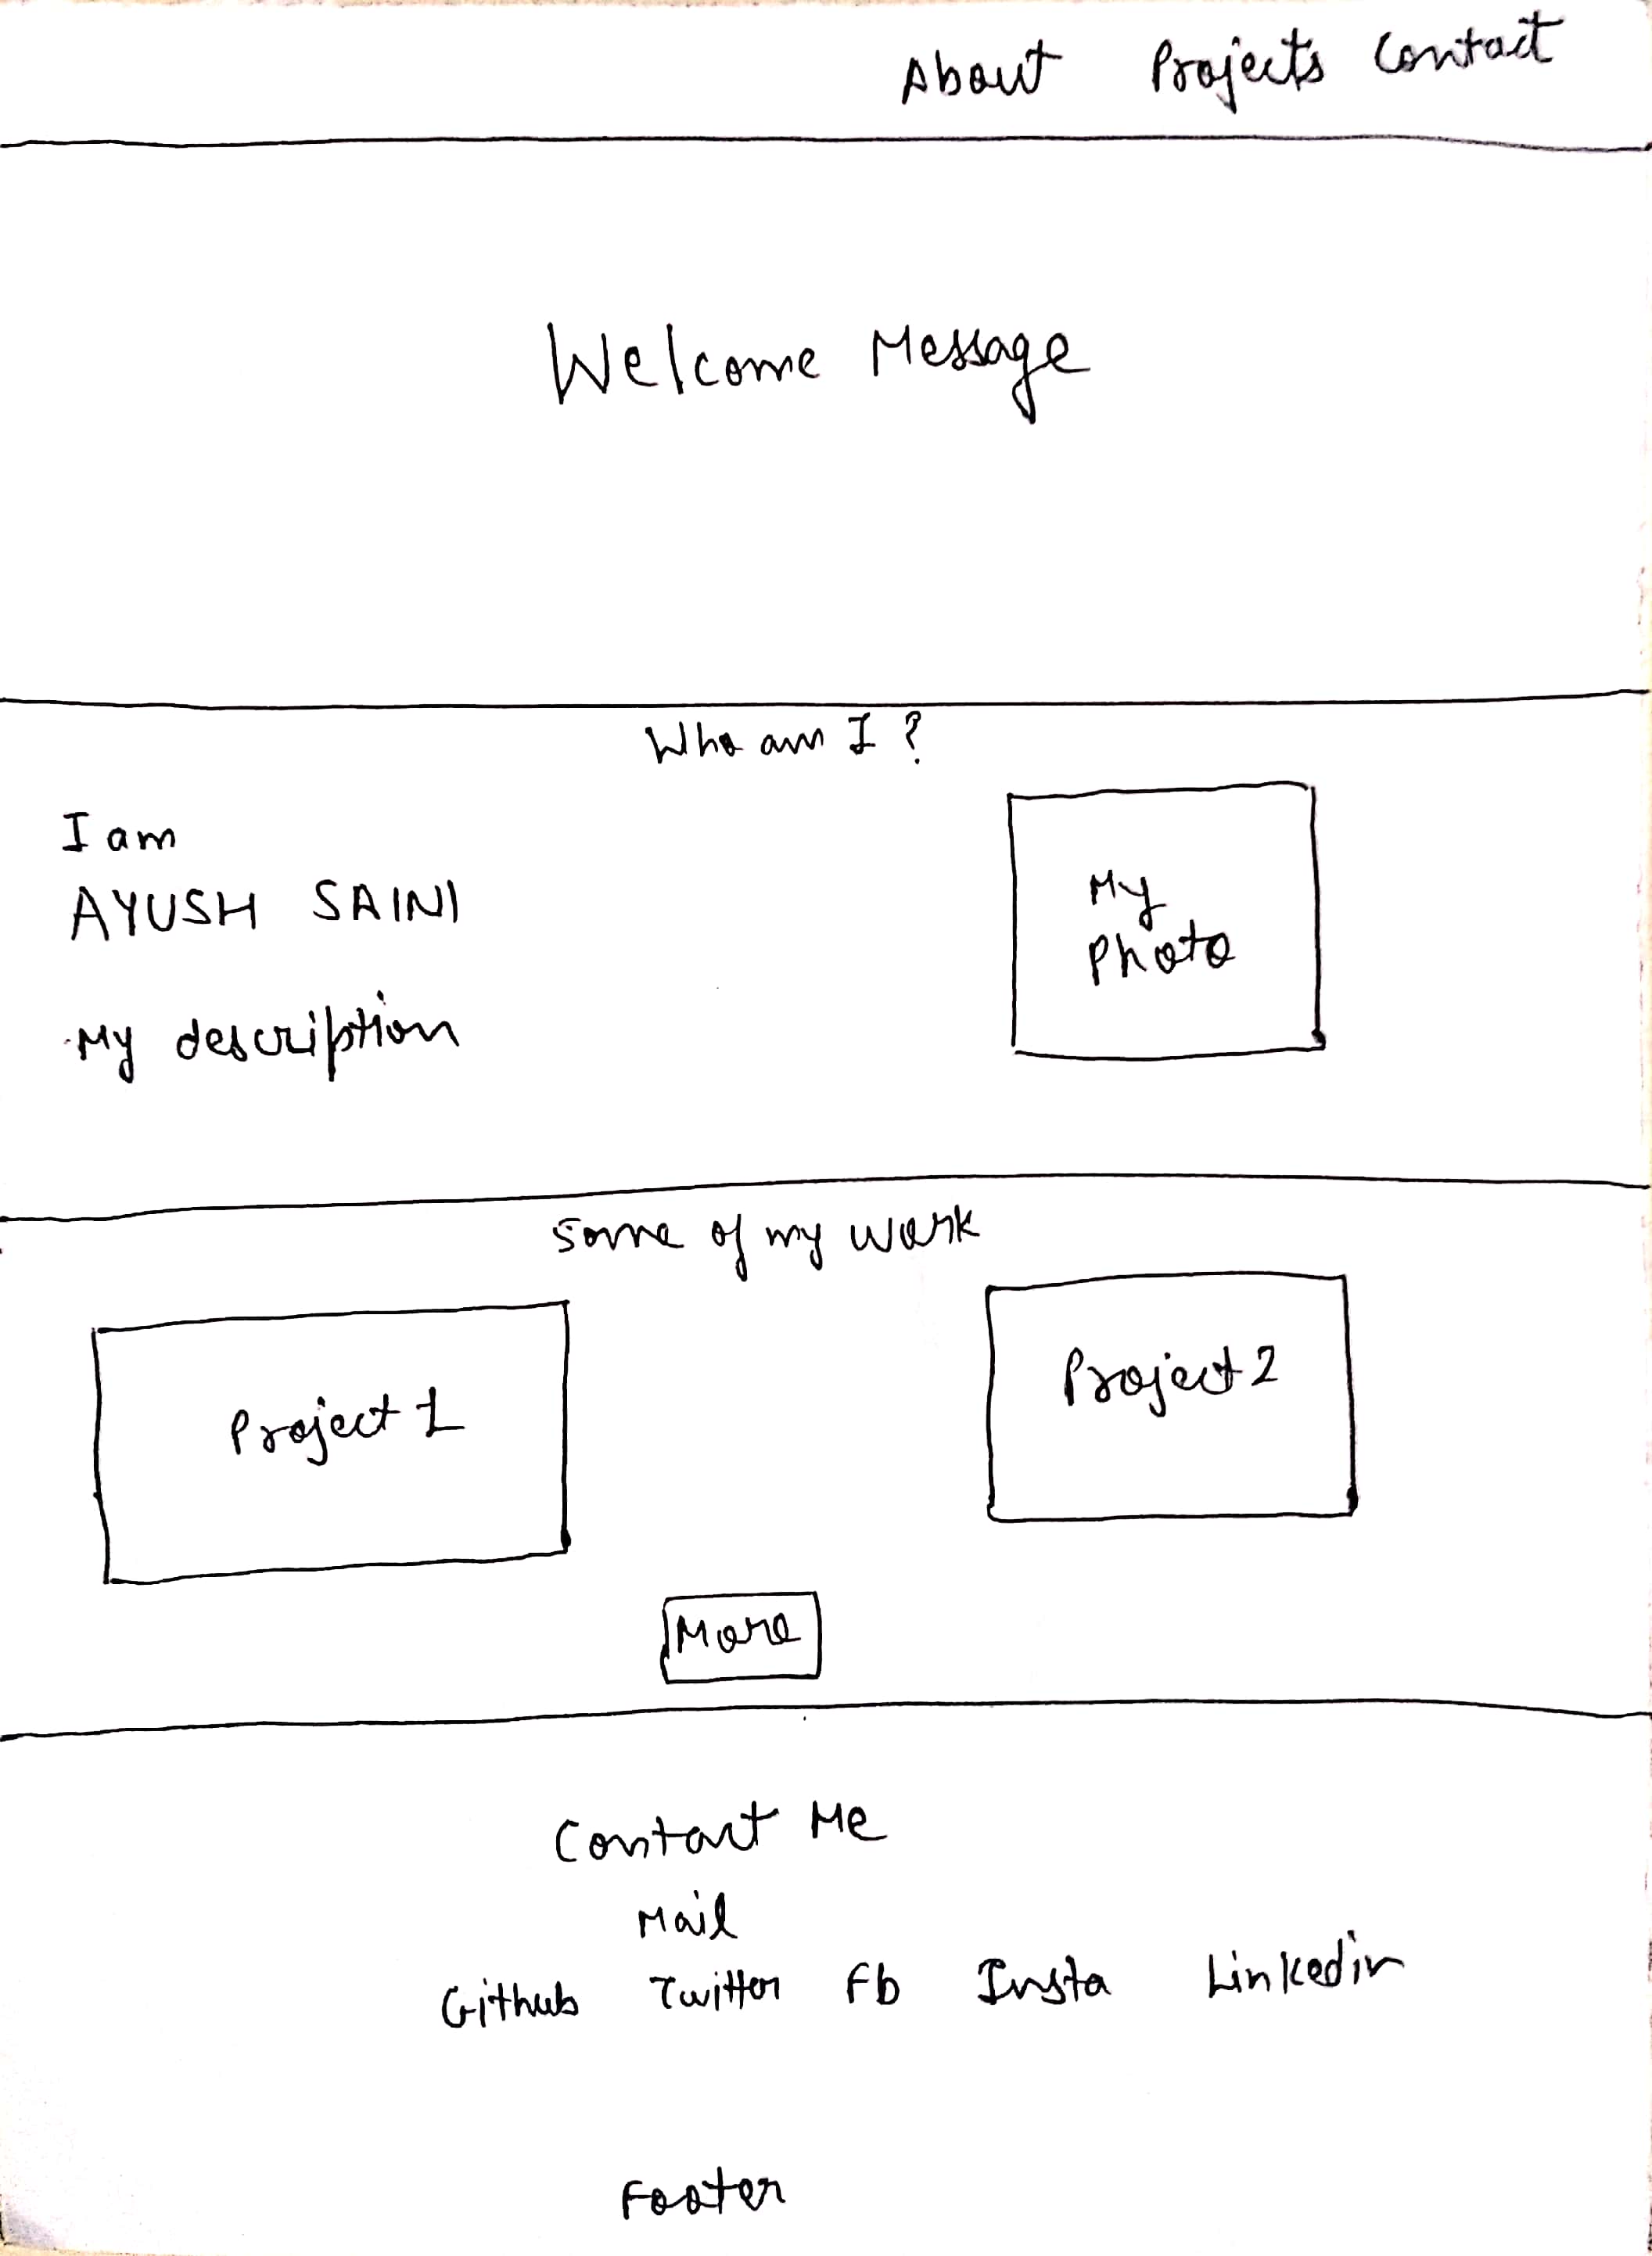 About Projects Contact
Welcome Message
Who am I ?
I am
AYUSH SAINI
My description
My
Photo
Some of my work
Project 1
Project 2
More
Contact Me
Mail
Github Twitter Fb Insta Linkedin
Footer